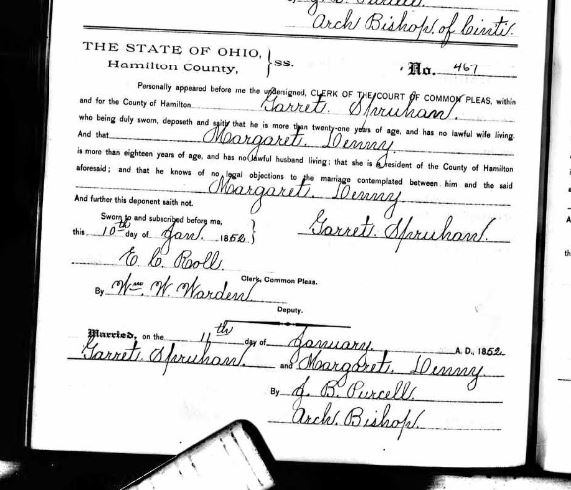 Arch Bishop of Cinti.
THE STATE OF OHIO, } ss.
Hamilton County,
No. 467
Personally appeared before me the undersigned, CLERK OF THE COURT OF COMMON PLEAS, within
and for the County of Hamilton Garret Spruhan
who being duly sworn, deposeth and saith that he is more than twenty-one years of age, and has no lawful wife living.
And that Margaret Denny
is more than eighteen years of age, and has no lawful husband living; that she is a resident of the County of Hamilton
aforesaid; and that he knows of no legal objections to the marriage contemplated between him and the said
Margaret Denny
And further this deponent saith not.
Sworn to and subscribed before me,
this 10th day of Jan. 1852 } Garret Spruhan.
E. C. Roll
Clerk, Common Pleas.
By Wm. W. Warden
Deputy.
Married, on the 11th day of January A. D., 1852.
Garret Spruhan and Margaret Denny
By J. B. Purcell
Arch Bishop